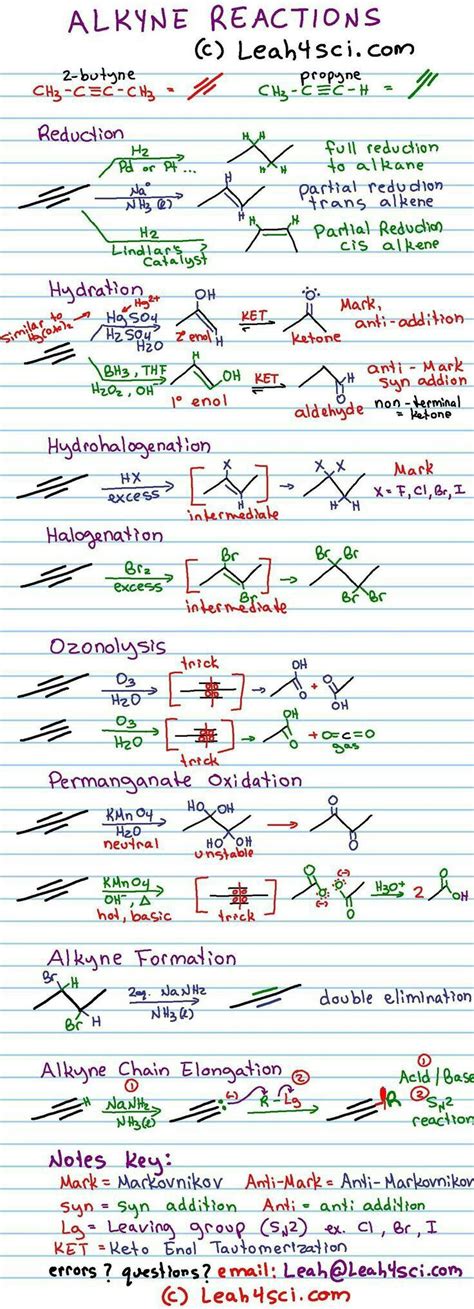 ALKYNE REACTIONS
(c) Leah4sci.com
2-butyne propyne
CH3-C≡C-CH3 = CH3-C≡C-H =
Reduction
H2
Pd or Pt...
H H
H H
full reduction
to alkane
Na°
NH3(l)
H
H
partial reduction
trans alkene
H2
Lindlar's
Catalyst
H H
Partial Reduction
cis alkene
Hydration
Similar to
Hg2+
HgSO4
H2SO4
H2O
OH
H
2° enol
KET
O
ketone
Mark,
anti-addition
BH3, THF
H2O2, OH-
H
OH
1° enol
KET
H
O
aldehyde
anti-Mark
syn addion
non-terminal
= ketone
Hydrohalogenation
HX
excess
X
H
intermediate
X X
H H
Mark
X = F, Cl, Br, I
Halogenation
Br2
excess
Br
Br
intermediate
Br Br
Br Br
Ozonolysis
trick
O3
H2O
OH
O
+
O
OH
O3
H2O
trick
OH
O
+ O=C=O
gas
Permanganate Oxidation
KMnO4
H2O
neutral
HO OH
HO OH
unstable
O
O
KMnO4
OH-, Δ
hot, basic
trick
O O (-)
(-) O O
H3O+
2
O
OH
Alkyne Formation
Br H
Br H
2eq. NaNH2
NH3(l)
double elimination
Alkyne Chain Elongation
H
①
NaNH2
NH3(l)
(-)
②
R-Lg
R
①
Acid/Base
②
SN2
reaction
Notes Key:
Mark = Markovnikov Anti-Mark = Anti-Markovnikov
syn = syn addition Anti = anti addition
Lg = Leaving group (SN2) ex. Cl, Br, I
KET = Keto Enol Tautomerization
errors? questions? email: Leah@Leah4sci.com
(c) Leah4sci.com